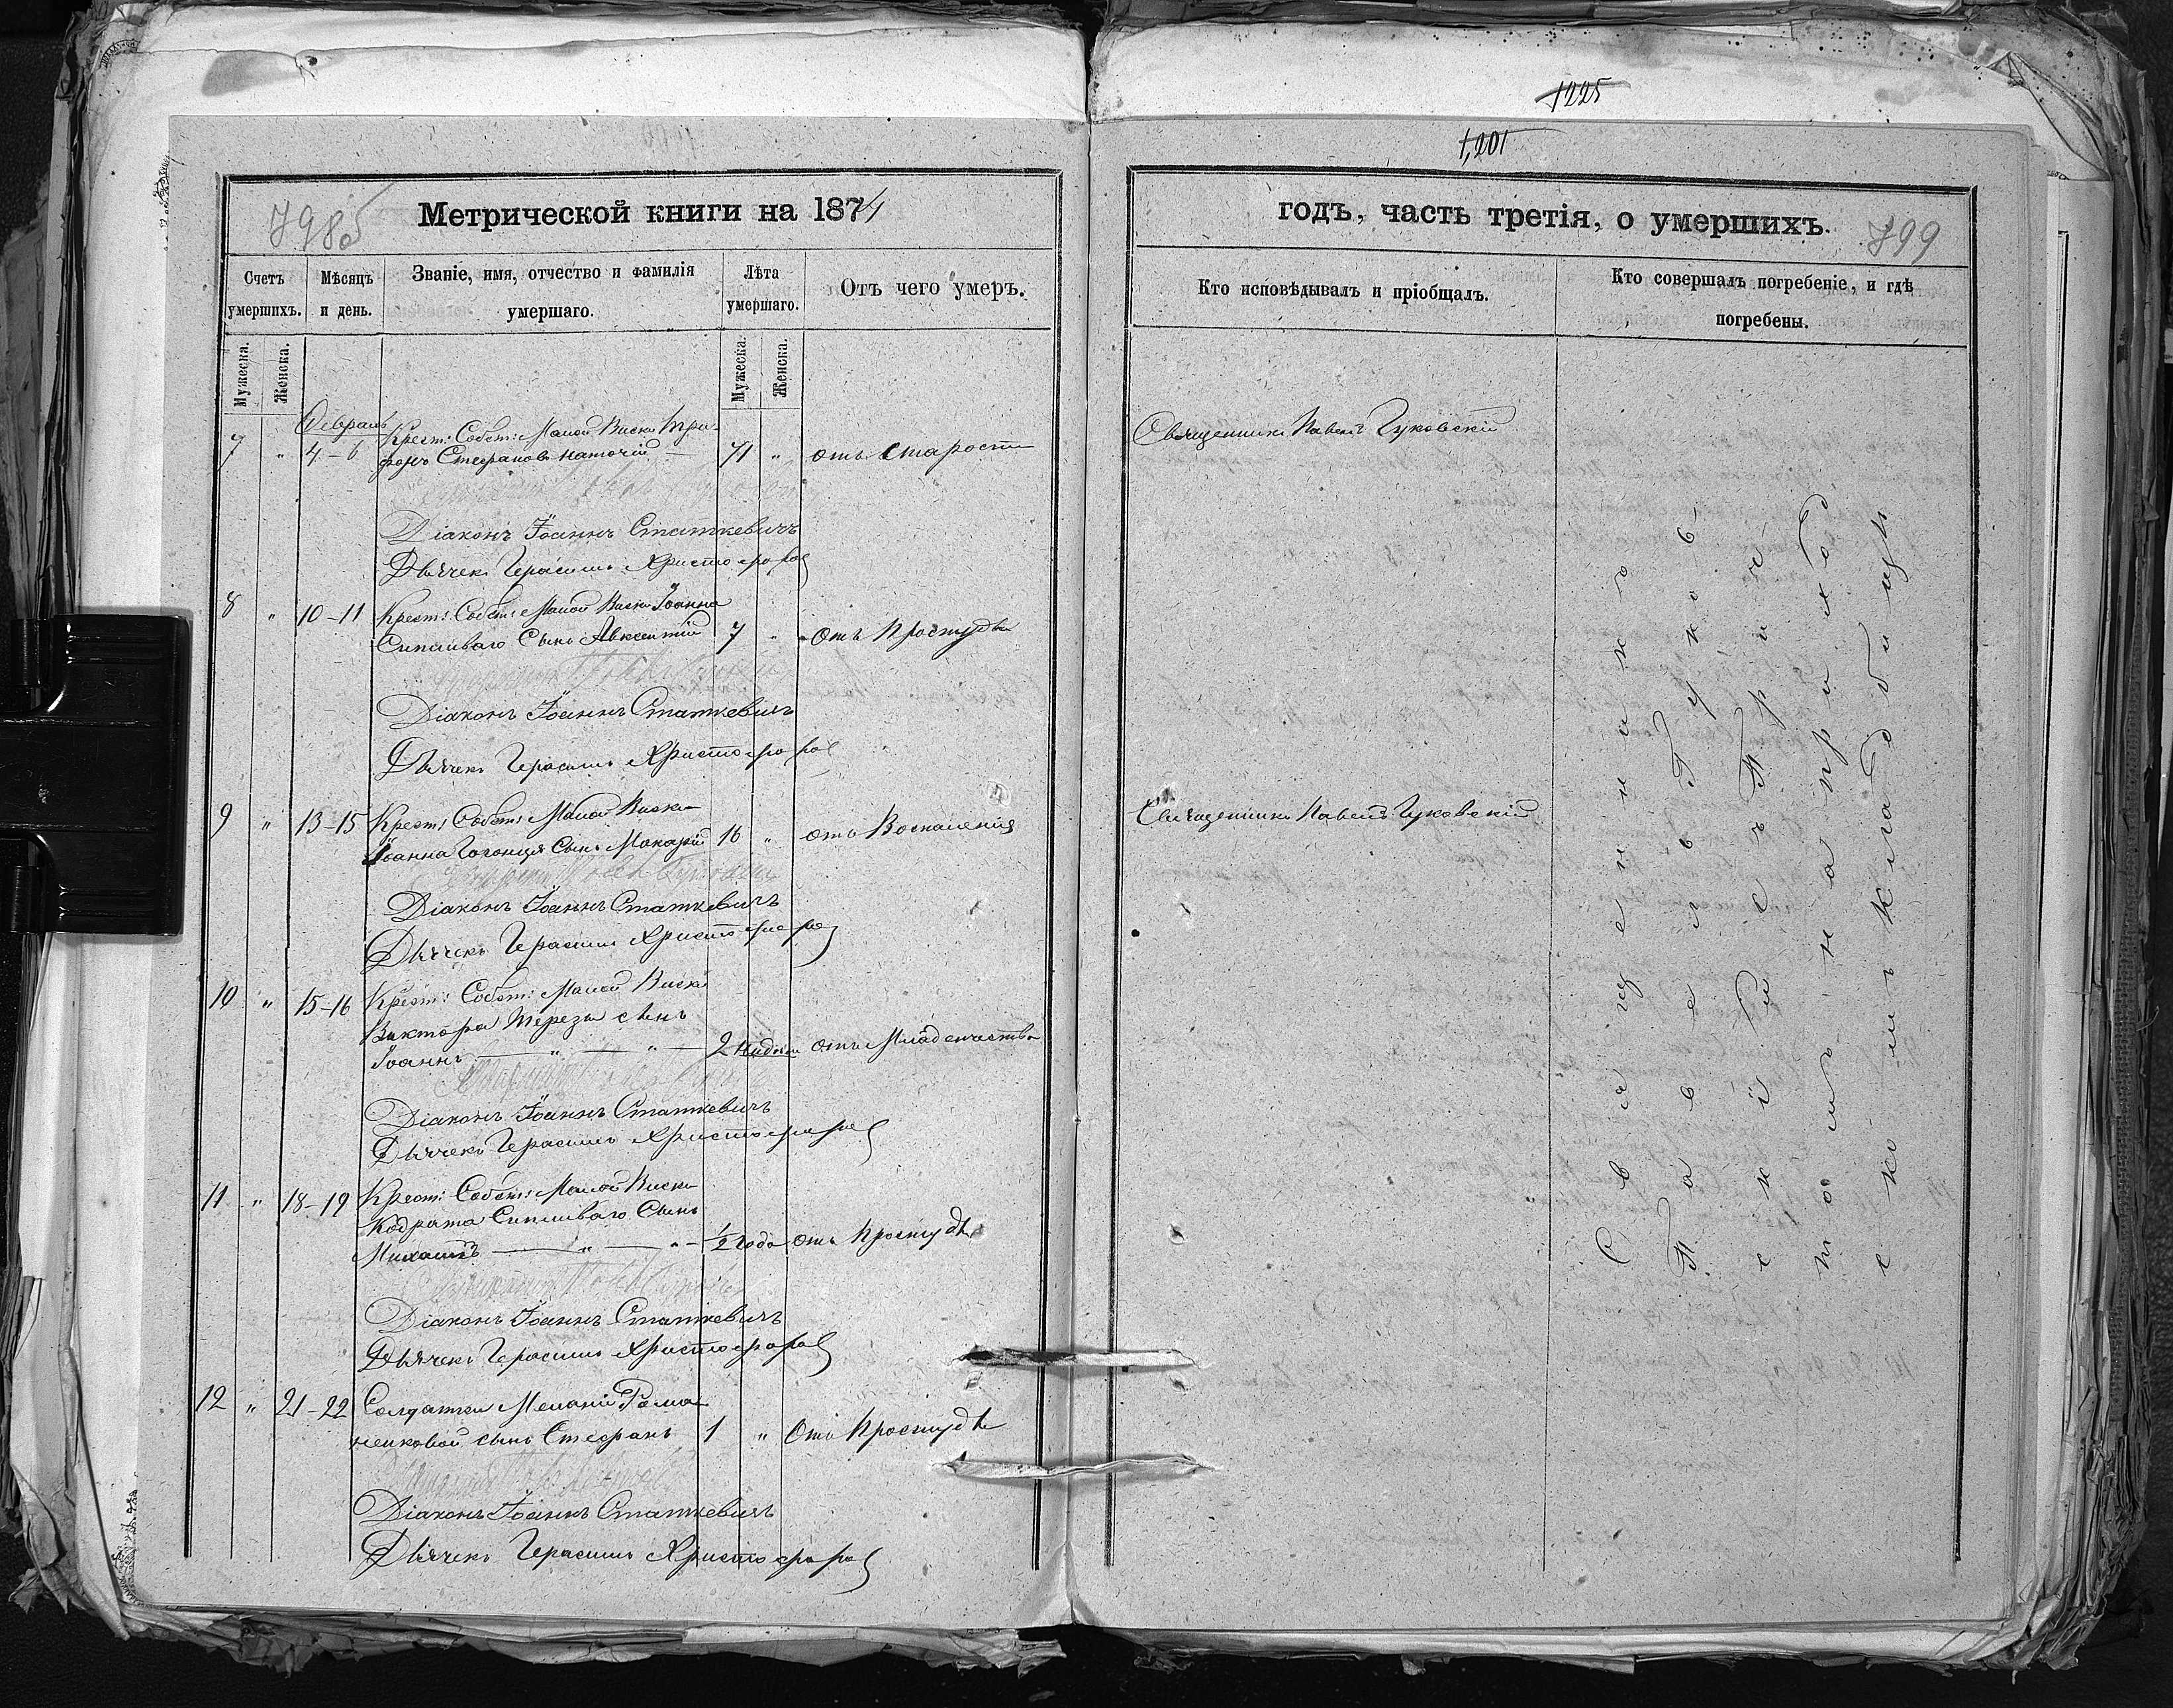 1225
1,201
798б
Метрической книги на 1874
Счетъ умершихъ.
Мѣсяцъ и день.
Званіе, имя, отчество и фамилія умершаго.
Лѣта умершаго.
Отъ чего умеръ.
Мужеска.
Женска.
Мужеска.
Женска.
Февраль
7 " 4-6 Крест: Собст: Малой Виски Три-
фонъ Стефановъ 71 " отъ старости
Діаконъ Іоаннъ Статкевичъ
Дьячекъ Герасимъ Христофоров
8 " 10-11 Крест: Собст: Малой Виски Іоанна
Сипливаго Сынъ Авксентій 7 " отъ Простуды
Діаконъ Іоаннъ Статкевичъ
Дьячекъ Герасимъ Христофоров
9 " 13-15 Крест: Собст: Малой Виски
Іоанна Гогонця Сынъ Макарій 16 " отъ Воспаленія
Діаконъ Іоаннъ Статкевичъ
Дьячекъ Герасимъ Христофоров
10 " 15-16 Крест: Собст: Малой Виски
Виктора Терезы сынъ
Іоаннъ — " — " — 2 Недели отъ Младенчества
Діаконъ Іоаннъ Статкевичъ
Дьячекъ Герасимъ Христофоров
11 " 18-19 Крест: Собст: Малой Виски
Кодрата Сипливаго Сынъ
Михаилъ — " — " — 1/2 Года отъ Простуды
Діаконъ Іоаннъ Статкевичъ
Дьячекъ Герасимъ Христофоров
12 " 21-22 Солдатки Меланіи Рома-
ненковой сынъ Стефанъ 1 " Отъ Простуды
Діаконъ Іоаннъ Статкевичъ
Дьячекъ Герасимъ Христофоров
годъ, часть третія, о умершихъ.
799
Кто исповѣдывалъ и пріобщалъ.
Кто совершалъ погребеніе, и гдѣ погребены.
Священникъ Павелъ Гуковскій
Священникъ Павелъ Гуковскій
Священникъ
Павелъ Гуков-
скій съ Прич-
томъ на приход
скомъ кладбищѣ